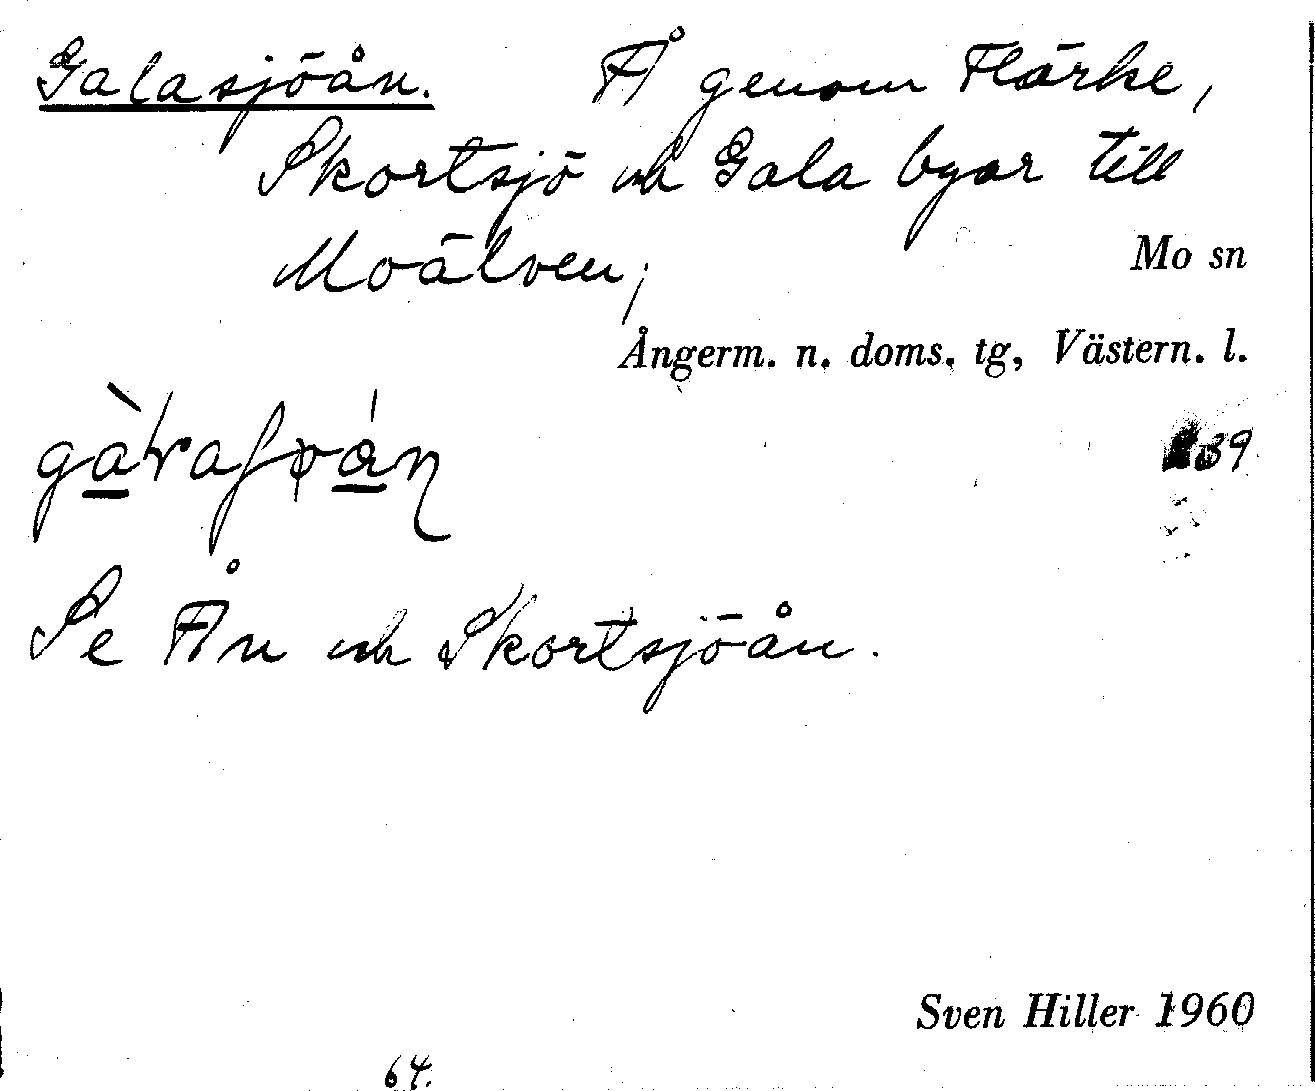 Galasjöån. Å genom Flärke,
Skortsjö och Gala byar till
Moälven;
Mo sn
Ångerm. n. doms. tg, Västern. l.
39
Se Ån och Skortsjöån.
Sven Hiller 1960
64.